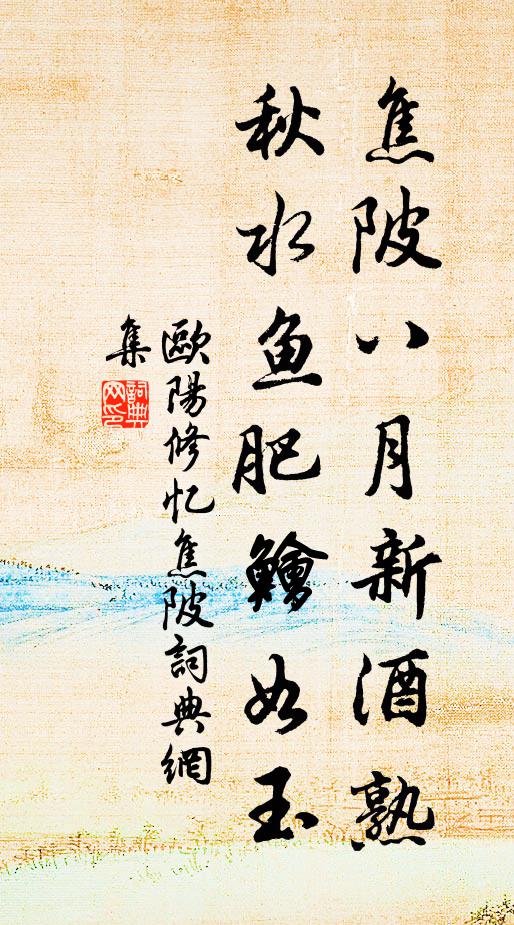 焦陂八月新酒熟
秋水鱼肥鱠如玉
歐陽修忆焦陂詞典網
集
詞典网印